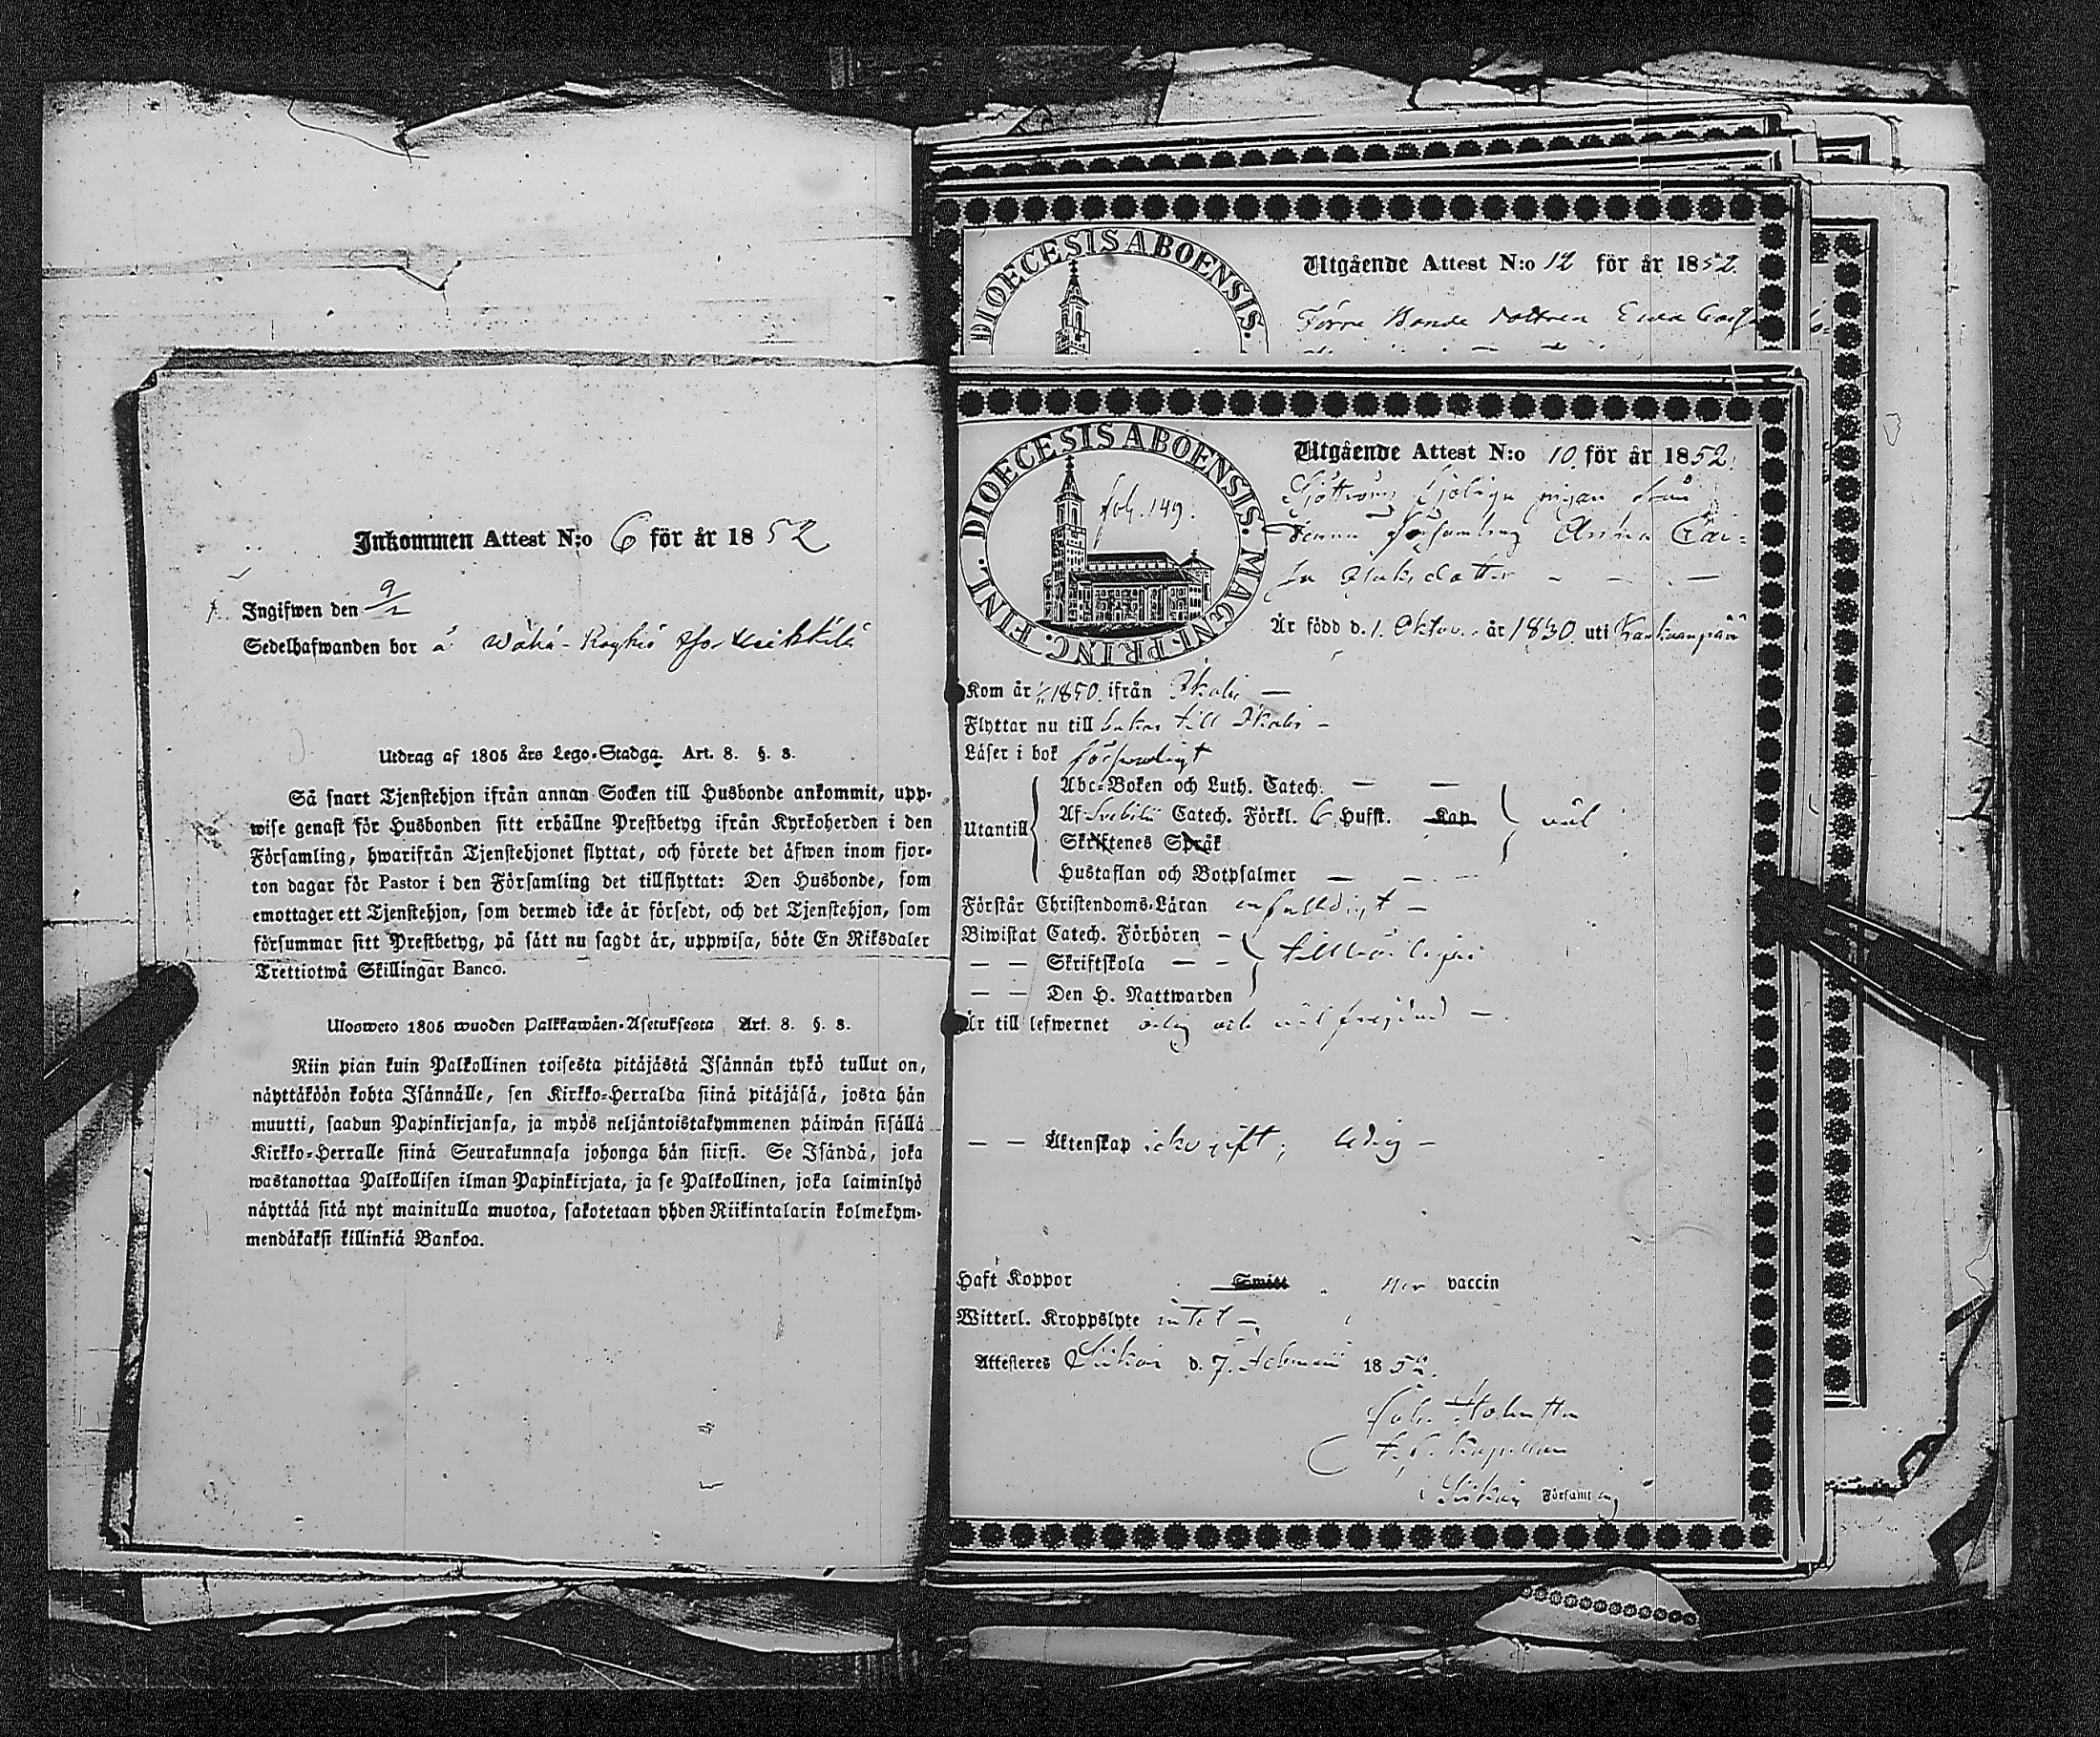 Inkommen Attest N:o 6 för år 1852
Ingifwen den 9/2
Sedelhafwanden bor å Wähä-Röyhiö
Utdrag af 1805 års Lego-Stadga. Art. 8. §. 8.
Så snart Tjenstehjon ifrån annan Socken till Husbonde ankommit, upp-
wise genast för Husbonden sitt erhållne Prestbetyg ifrån Kyrkoherden i den
Församling, hwarifrån Tjenstehjonet flyttat, och förete det äfwen inom fjor-
ton dagar för Pastor i den Församling det tillflyttat: Den Husbonde, som
emottager ett Tjenstehjon, som dermed icke är försedt, och det Tjenstehjon, som
försummar sitt Prestbetyg, på sätt nu sagdt är, uppwisa, böte En Riksdaler
Trettiotwå Skillingar Banco.
Ulosweto 1805 wuoden Palkkawäen-Asetuksesta Art. 8. §. 8.
Niin pian kuin Palkollinen toisesta pitäjästä Isännän tykö tullut on,
näyttäköön kohta Isännälle, sen Kirkko-Herralda siinä pitäjäsä, josta hän
muutti, saadun Papinkirjansa, ja myös neljäntoistakymmenen päiwän sisällä
Kirkko-Herralle siinä Seurakunnasa johonga hän siirsi. Se Isändä, joka
wastanottaa Palkollisen ilman Papinkirjata, ja se Palkollinen, joka laiminlyö
näyttää sitä nyt mainitulla muotoa, sakotetaan yhden Riikintalarin kolmekym-
mendäkaksi killinkiä Bankoa.
DIOECESIS ABOENSIS.
Utgående Attest N:o 12 för år 1852.
Förre Bonde dottren Ewa
DIOECESIS ABOENSIS. MAGNI. PRINC. FINL.
fol. 149.
Utgående Attest N:o 10. för år 1852.
pigan från
denna församling Anna Cai-
sa dotter
Är född d. 1. Oktob. år 1830. uti Kankaanpää
Kom år 1850. ifrån Ikalis
Flyttar nu till bakas till Ikalis
Läser i bok försvarligt
Utantill
Abc-Boken och Luth. Catech.
Af Svebilii Catech. Förkl. 6 Hufst. Kap
Skriftenes Språk
Hustaflan och Botpsalmer
väl
Förstår Christendoms-Läran enfaldigt
Biwistat Catech. Förhören
— — Skriftskola
— — Den H. Nattwarden
Är till lefwernet ärlig och väl frejdad
— — Äktenskap icke gift, ledig
Haft Koppor Smitt vaccin
Witterl. Kroppslyte intet
Attesteres d. 7. Februari 1852.
Församling